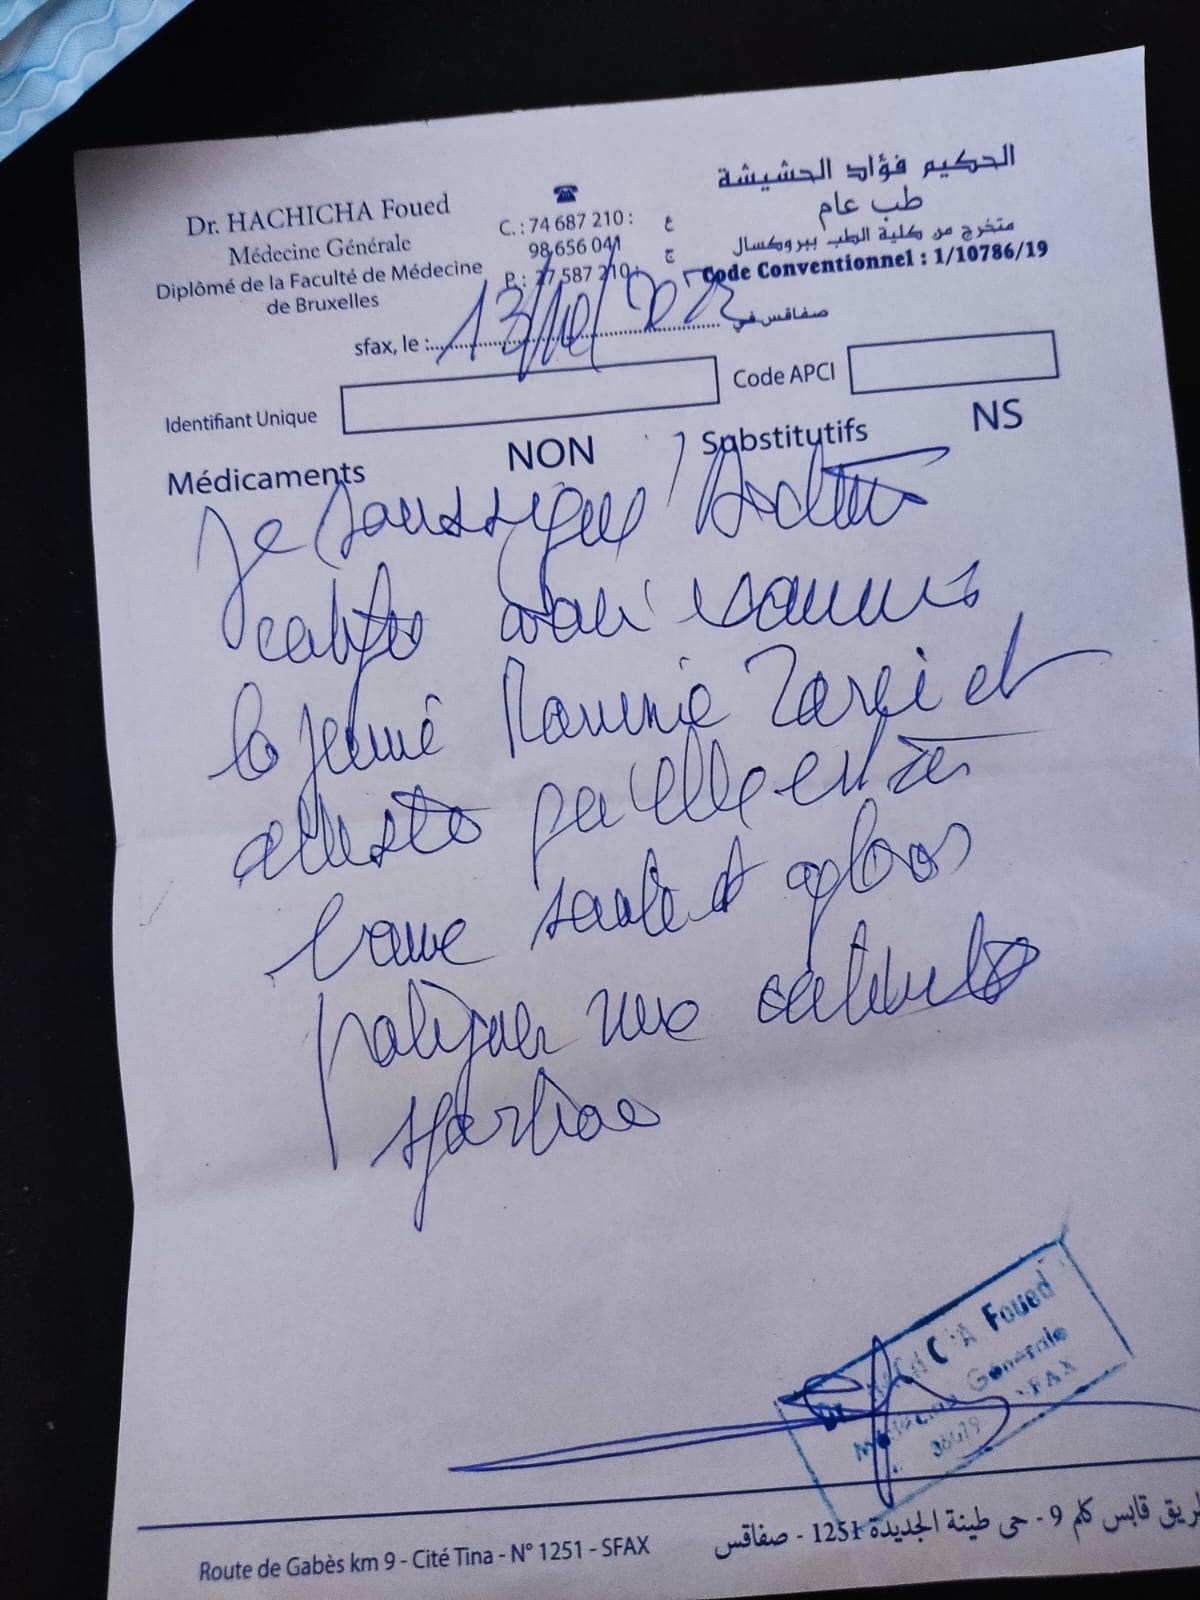 Dr. HACHICHA Foued
Médecine Générale
Diplômé de la Faculté de Médecine
de Bruxelles
☎
C. : 74 687 210 : ع
98 656 041 ج
P : 27 587 210 :
الحكيم فؤاد الحشيشة
طب عام
متخرج من كلية الطب ببروكسال
Code Conventionnel : 1/10786/19
sfax, le : 13/10/2022 صفاقس في
Identifiant Unique
Code APCI
Médicaments NON Substitutifs NS
Je soussigné Docteur
certifie avoir examiné
la jeune et
atteste qu'elle est en
bonne santé et
pratiquer une
sportive
Foued
Médecine Générale
SFAX
Route de Gabès km 9 - Cité Tina - N° 1251 - SFAX
طريق قابس كلم 9 - حي طينة الجديدة 1251 - صفاقس